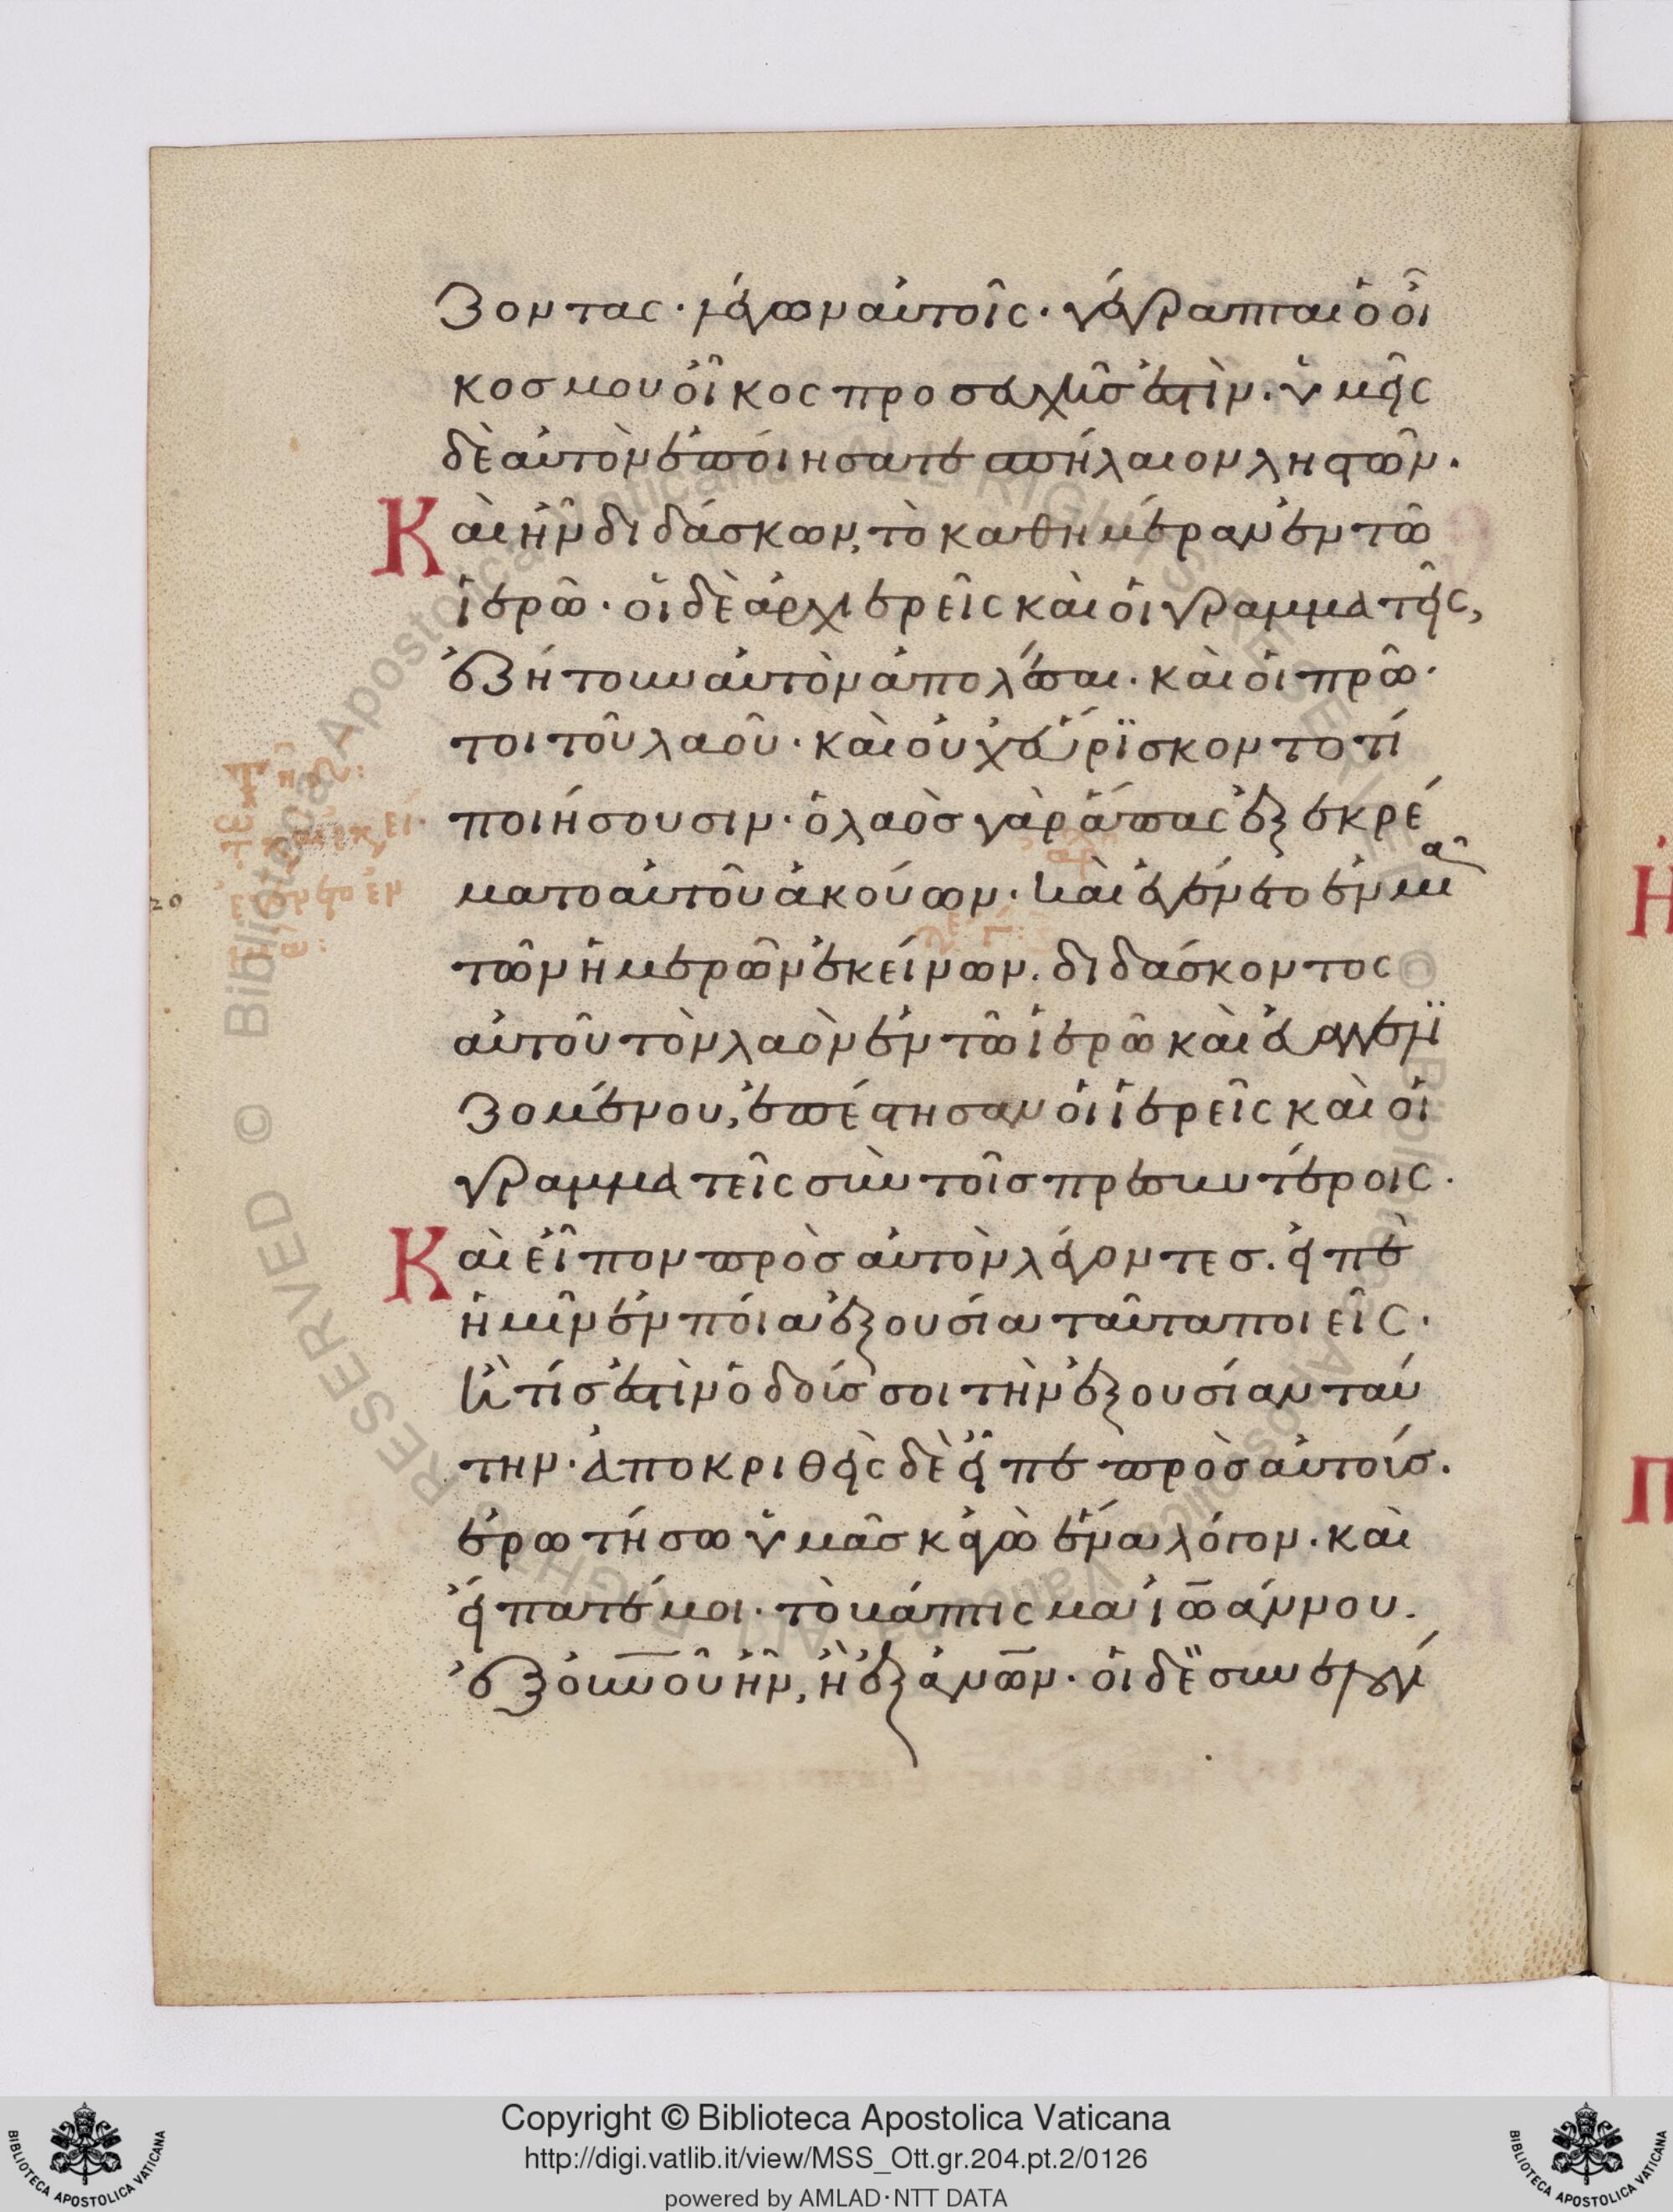 ζοντας· λέγων αὐτοῖς· γέγραπται ὁ οἶ
κος μου οἶκος προσευχῆς ἐστὶν. ὑμεῖς
δὲ αὐτὸν ἐποιήσατε σπήλαιον ληστῶν.
Καὶ ἦν διδάσκων, τὸ καθημέραν ἐν τῶ
ἱερῶ· οἱ δὲ ἀρχιερεῖς καὶ οἱ γραμματεῖς,
ἐζήτουν αὐτὸν ἀπολέσαι· καὶ οἱ πρῶ·
τοι τοῦ λαοῦ· καὶ οὐχ εὕρϊσκον το τί
ποιήσουσιν· ὁ λαὸς γὰρ ἅπας ἐξεκρέ
ματο αὐτοῦ ἀκούων· καὶ ἐγένετο ἐν μιᾶ
τῶν ἡμερῶν ἐκείνων. διδάσκοντος
αὐτοῦ τὸν λαὸν ἐν τῶ ἱερῶ καὶ εὐαγγενϊ
ζομένου, ἐπέστησαν οἱ ἱερεῖς καὶ οἱ
γραμματεῖς σὺν τοῖς πρεσβυτέροις.
Καὶ εἶπον πρὸς αὐτὸν λέγοντες. εἰπὲ
ἡμῖν ἐν ποία ἐξουσία ταῦτα ποιεῖς·
ἢ τίς ἐστὶν ὁ δούς σοι τὴν ἐξουσίαν ταύ
την· ἀποκριθεὶς δὲ εἶπε πρὸς αὐτούς.
ἐρωτήσω ὑμᾶς κἀγὼ ἕνα λόγον· καὶ
εἴπατέ μοι· τὸ βάπτισμα ἰωάννου.
ἐξ οὐνοῦ ἦν, ἢ ἐξ ἀνων· οἱ δὲ συνελογί
20
Copyright © Biblioteca Apostolica Vaticana
http://digi.vatlib.it/view/MSS_Ott.gr.204.pt.2/0126
powered by AMLAD·NTT DATA
BIBLIOTECA APOSTOLICA VATICANA
BIBLIOTECA APOSTOLICA VATICANA